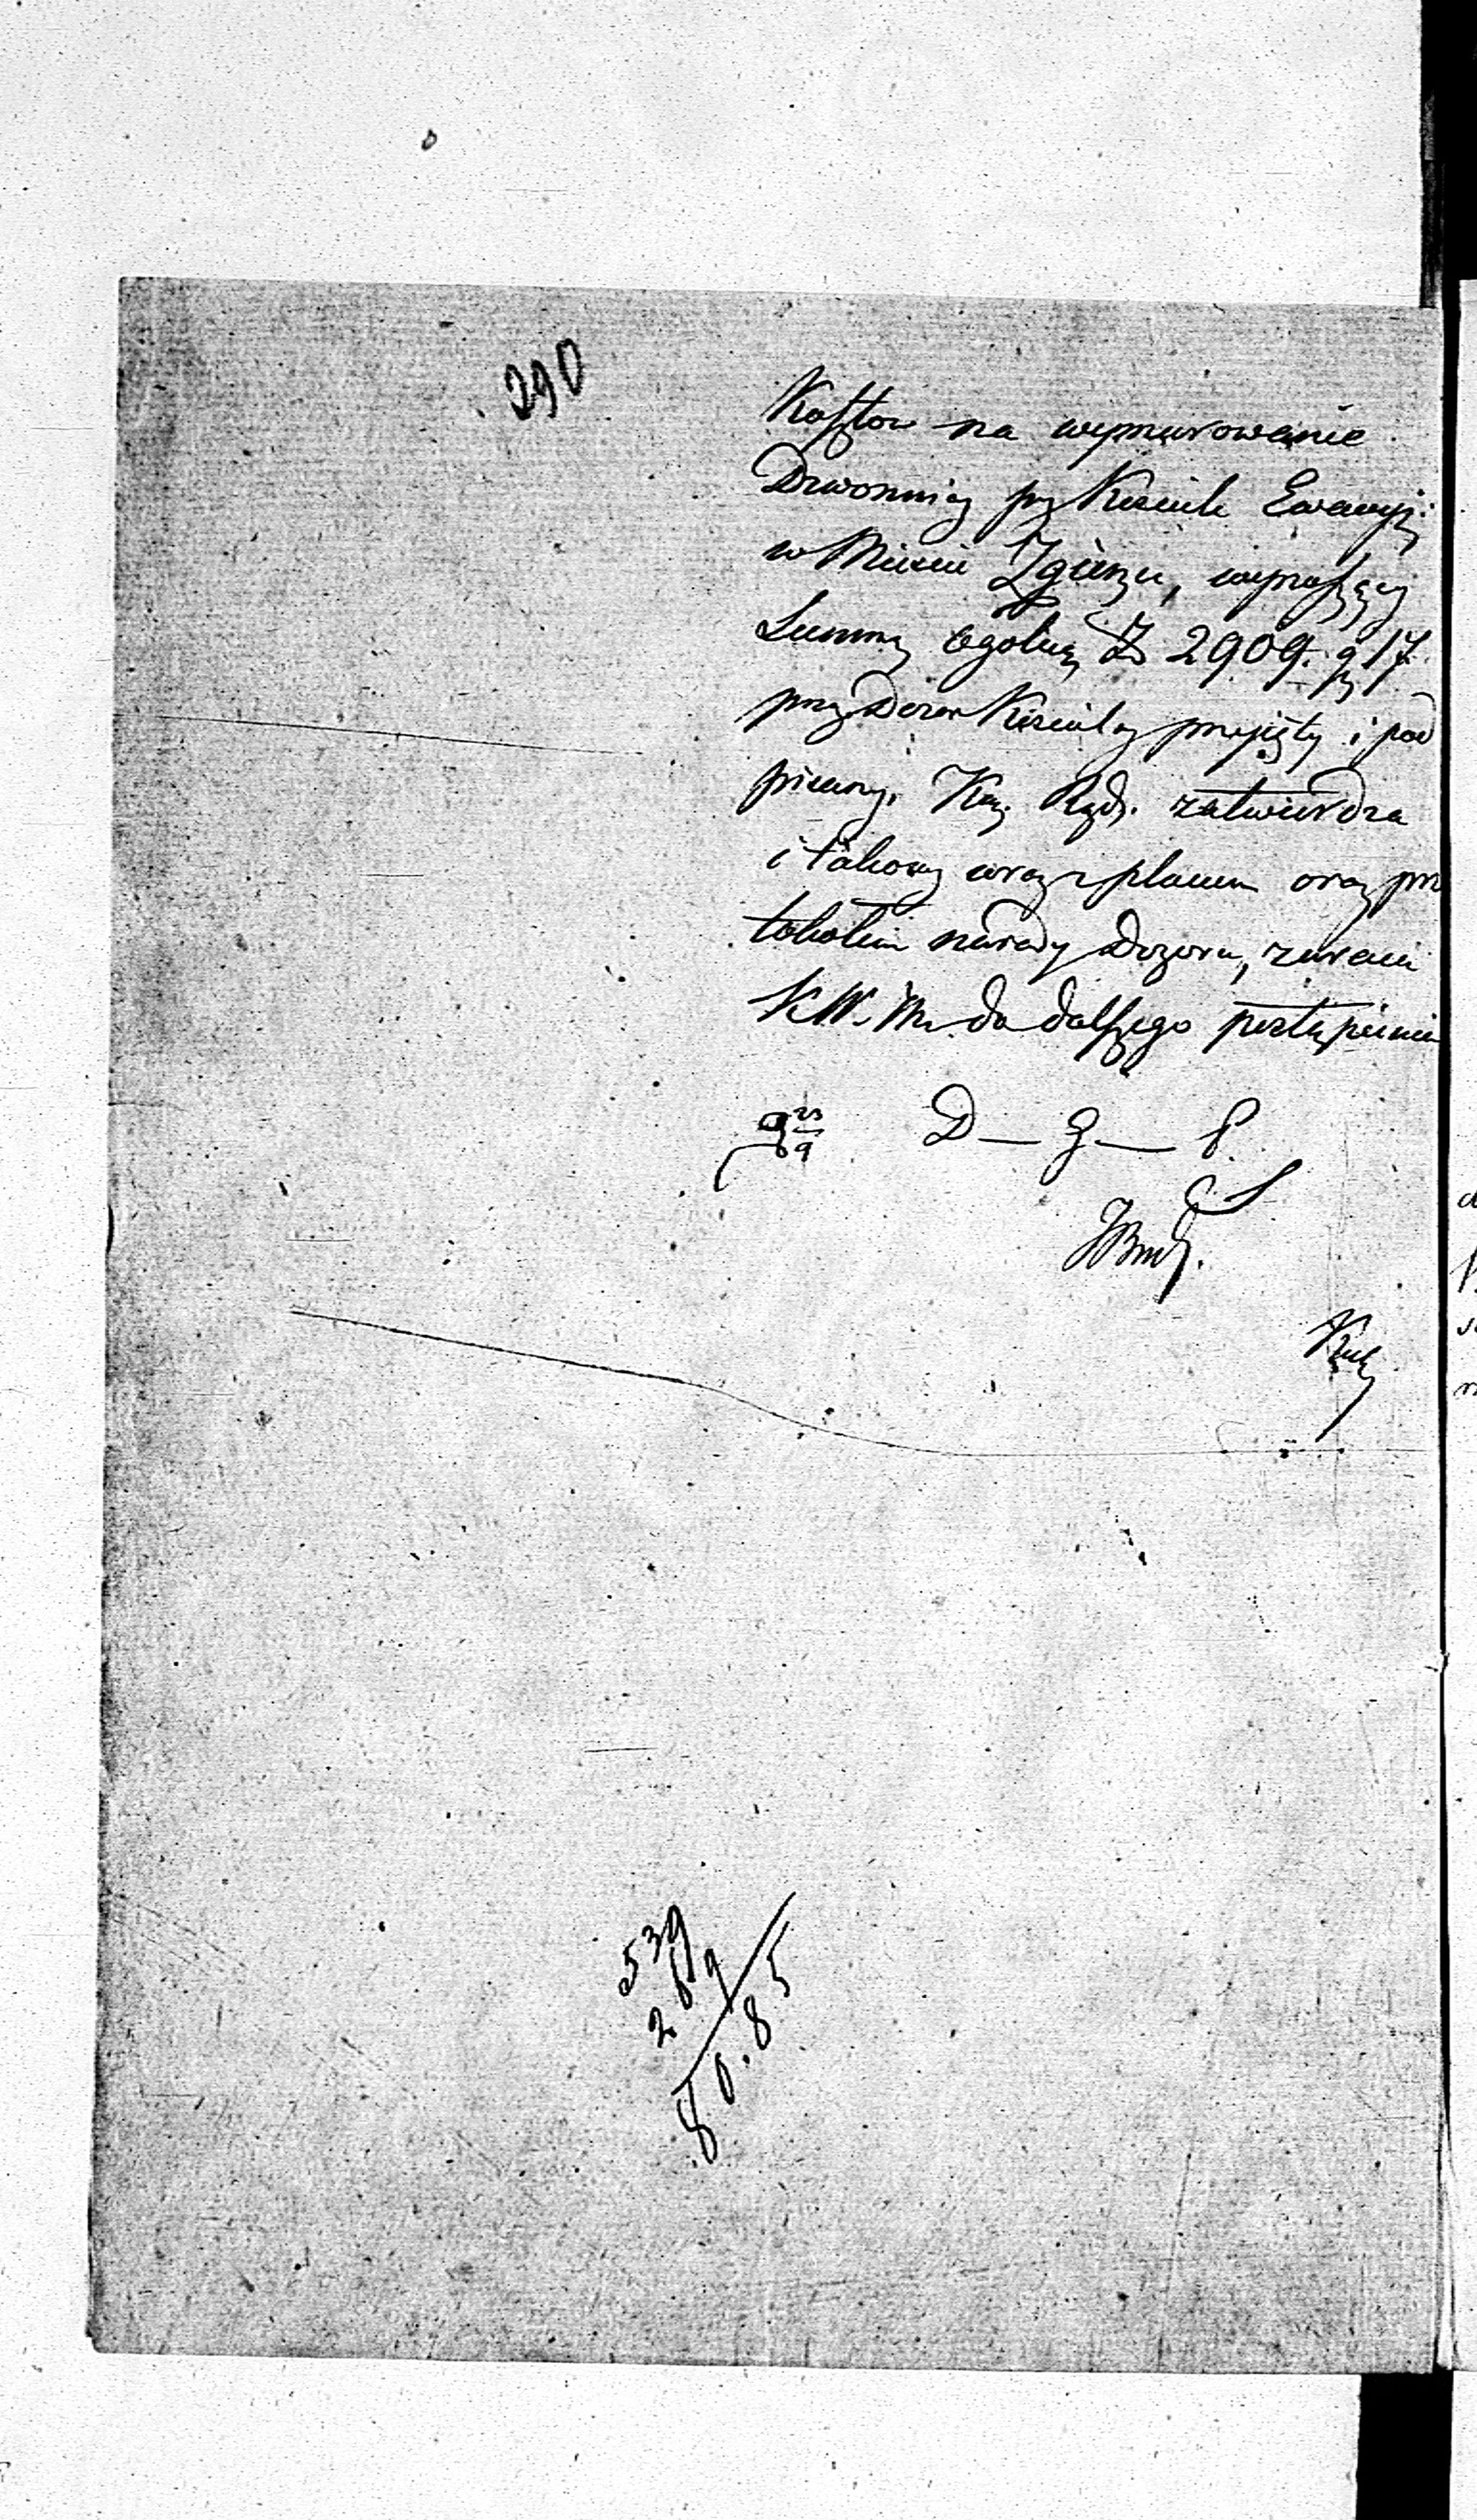 290
Kosztow na wymurowanie
Dzwonnicy przy Kościele Ewangi:
w Mieście Zgierzu, wynoszący
Summę Ogolną Zł 2909. g 17.
przez Dozor Kościelny przyjęty i pod
pisany. Kom. Rząd. zatwierdza
i takowy wraz z planem oraz pro
tokołem narady Dozoru, zwraca
K.W. M. do dalszego postąpienia
D — G — P.
539
269
80.85